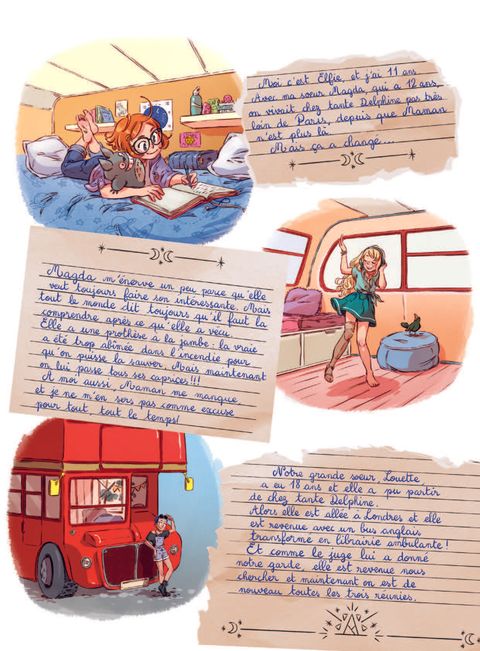 Moi c'est Elfie, et j'ai 11 ans.
Avec ma sœur Magda, qui a 12 ans,
on vivait chez tante Delphine pas très
loin de Paris, depuis que Maman
n'est plus là.
Mais ça a changé...
Magda m'énerve un peu parce qu'elle
veut toujours faire son intéressante. Mais
tout le monde dit toujours qu'il faut la
comprendre après ce qu'elle a vécu.
Elle a une prothèse à la jambe : la vraie
a été trop abîmée dans l'incendie pour
qu'on puisse la sauver. Mais maintenant
on lui passe tous ses caprices !!!
A moi aussi, Maman me manque,
et je ne m'en sers pas comme excuse
pour tout, tout le temps!
Notre grande sœur, Louette
a eu 18 ans et elle a pu partir
de chez tante Delphine.
Alors elle est allée à Londres et elle
est revenue avec un bus anglais
transformé en librairie ambulante !
Et comme le juge lui a donné
notre garde, elle est revenue nous
chercher et maintenant on est de
nouveau toutes les trois réunies.